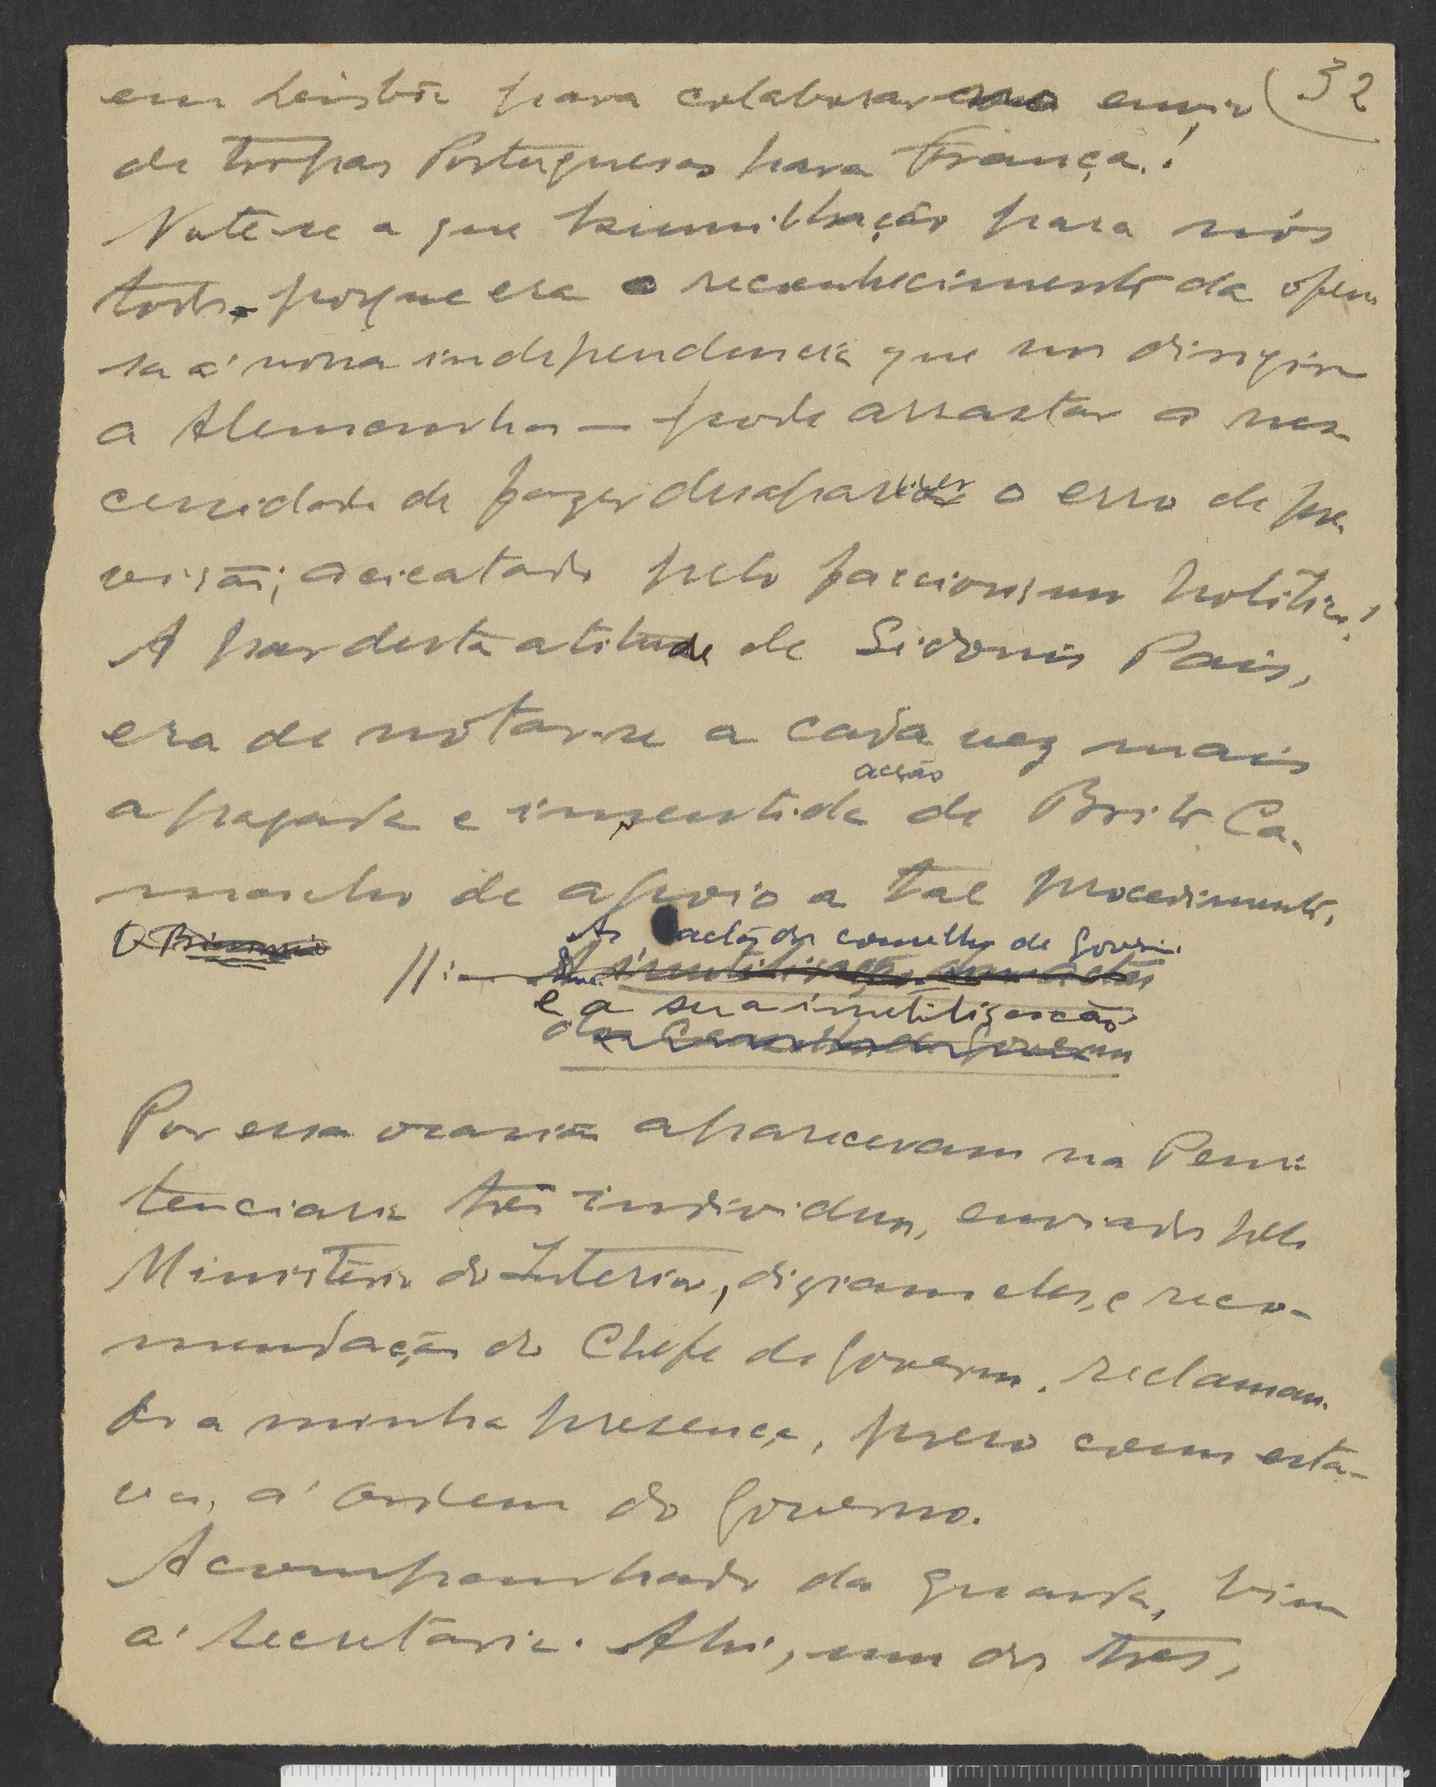 32
em Lisbôa para colaborar no envio
de tropas Portuguesas para França!
Note-se a que humilhação para nós
todos, porque era o reconhecimento da ofen
sa á nossa independencia que nos dirigira
a Alemanha — pode arrastar a nes-
cessidade de fazer desaparecer o erro de pre-
visão; acicatado pelo faccionismo politico!
A par desta atitude de Sidonio Pais,
era de notar-se a cada vez mais
acção
apagada e insentida de Brito Ca-
macho de apoio a tal procedimento.
As actas do conselho de Govêrno
11:— A inutilização das actas
e a sua inutilização
do Conselho de Governo
Por essa ocasião apareceram na Peni
tenciaria três individuos, enviados pelo
Ministério do Interior, diziam eles, e reco-
mendação do Chefe do Governo, reclaman-
do a minha presença, preso como esta-
va, á ordem do Governo.
Acompanhado da guarda, vim
á secretaria. Ahi, um dos tres,